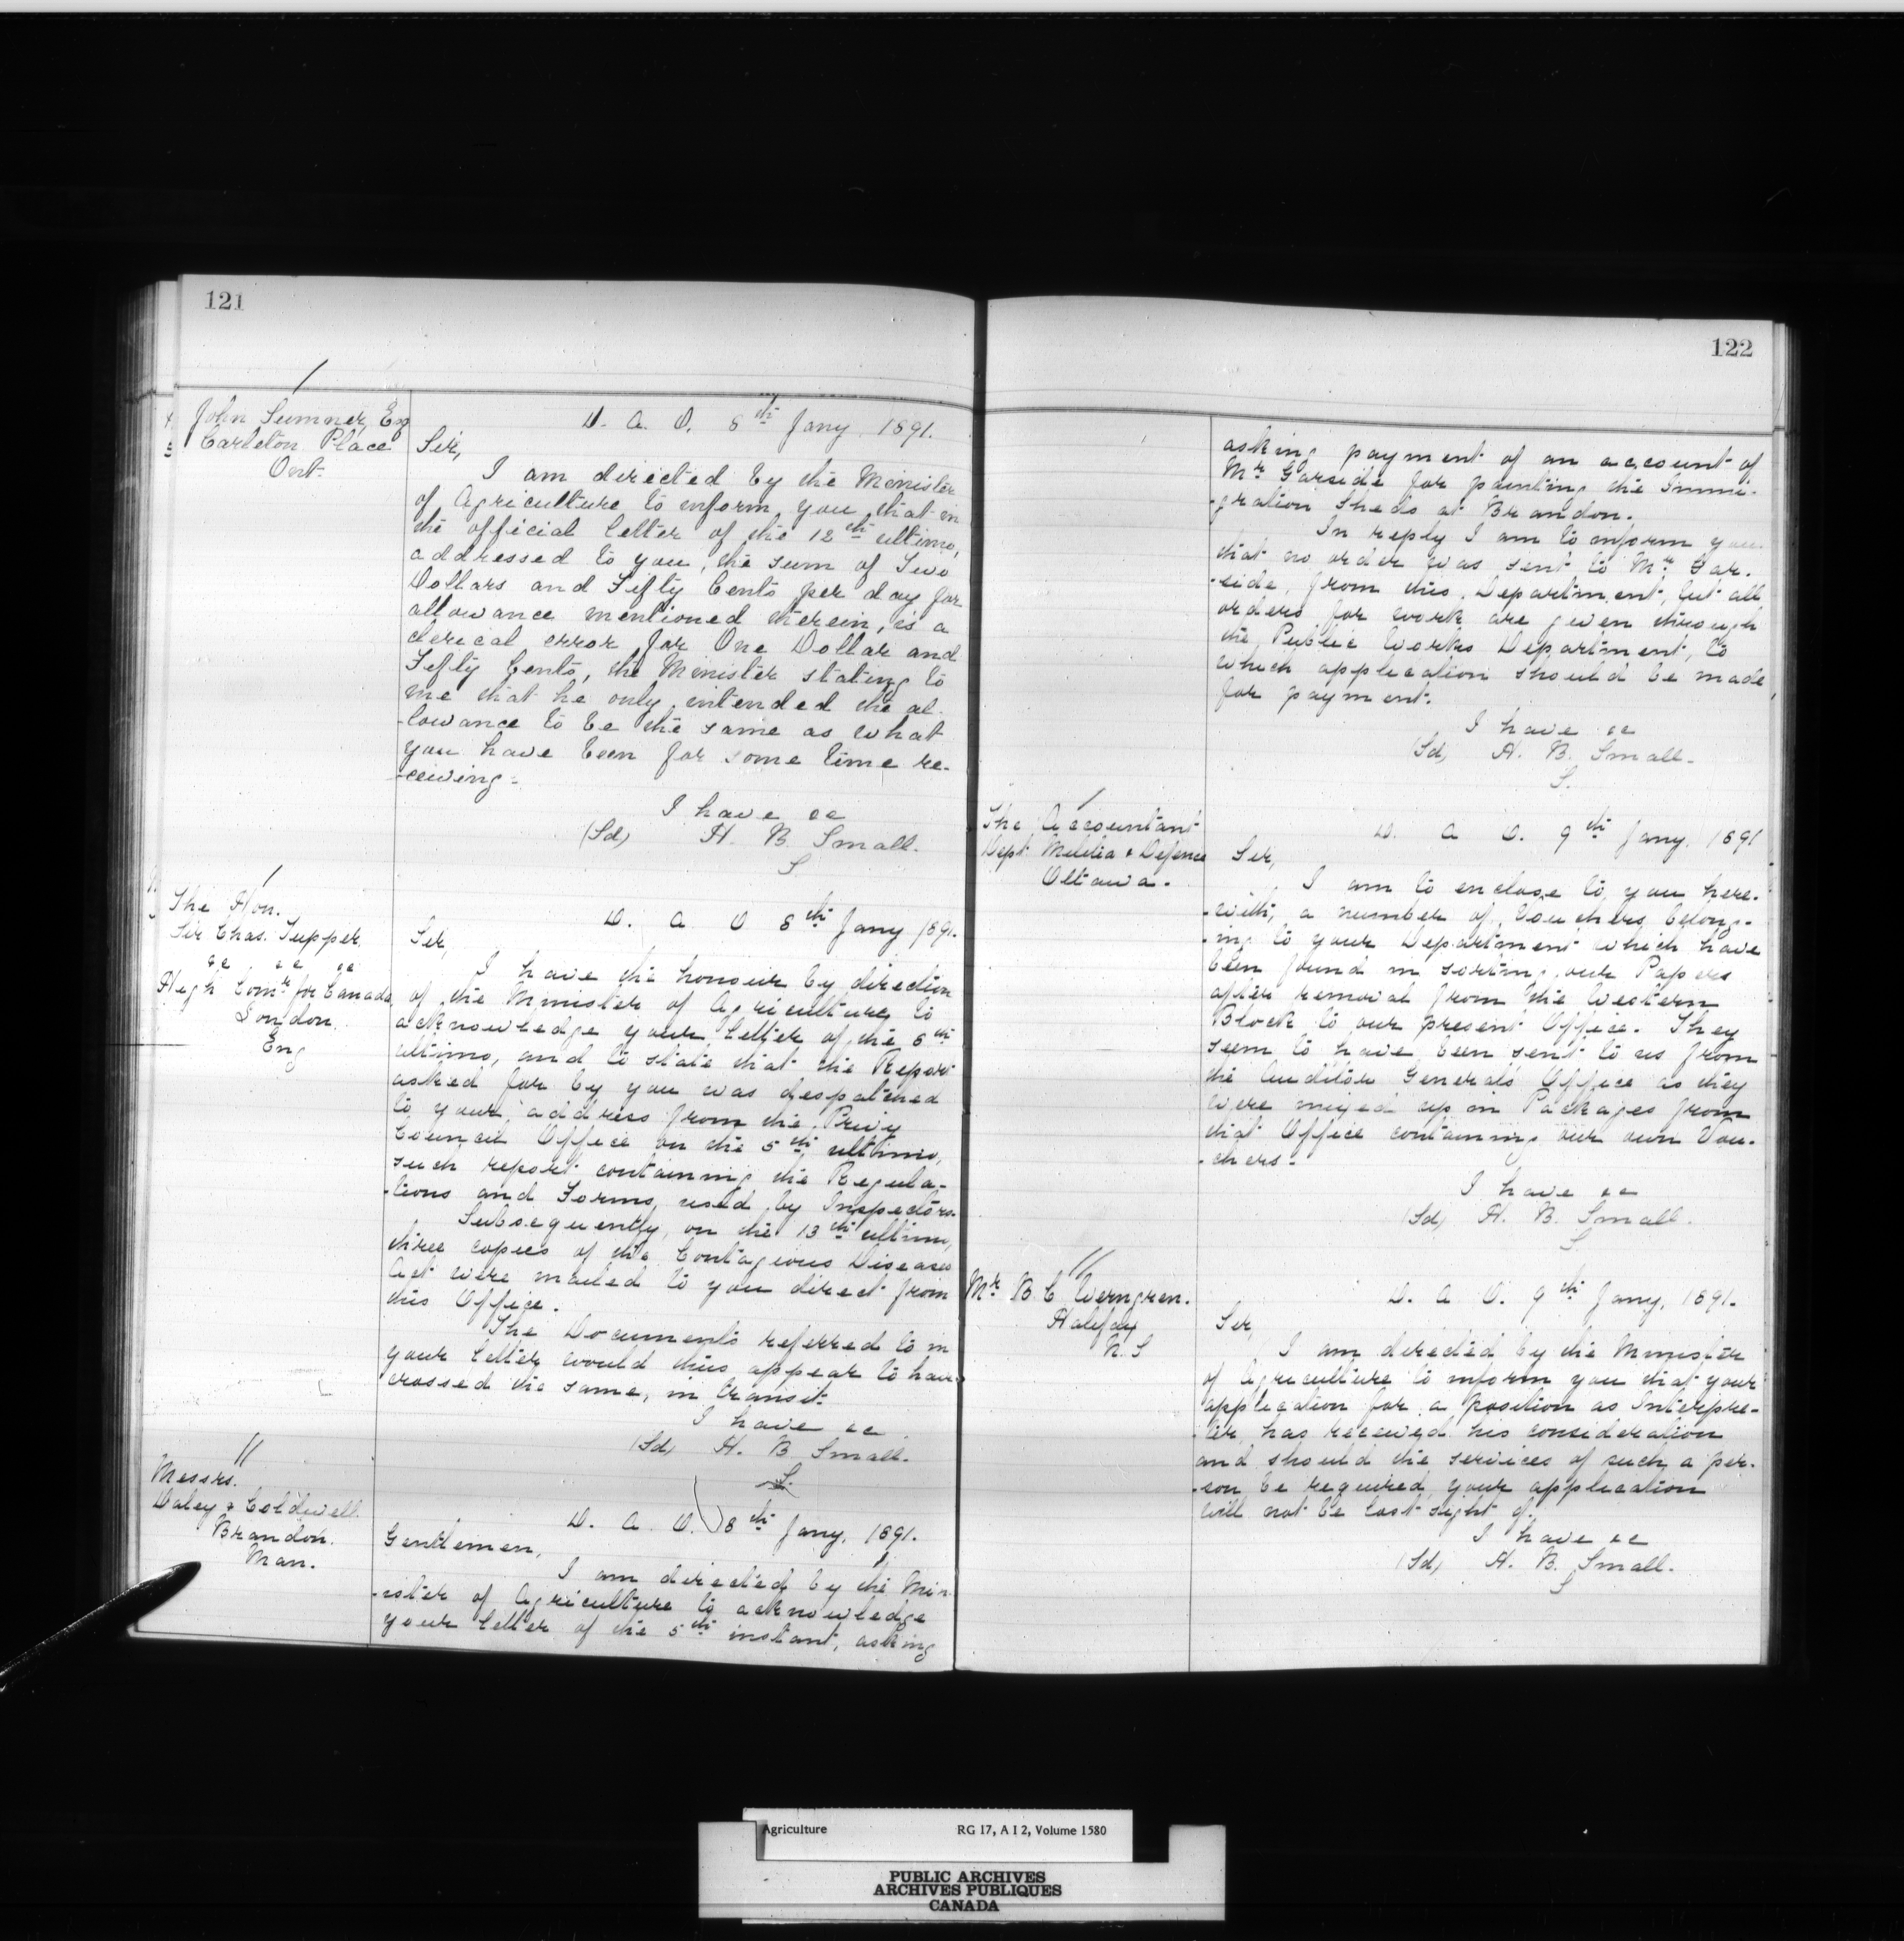 121
John Sumner, Esq
Carleton Place
Ont.
D. A. O. 8th Jany. 1891.
Sir,
I am directed by the Minister
of Agriculture to inform you that in
the official letter of the 12th ultimo,
addressed to you, the sum of Two
Dollars and Fifty Cents per day for
allowance mentioned therein, is a
clerical error for One Dollar and
Fifty Cents, the Minister stating to
me that he only intended the al-
-lowance to be the same as what
you have been for some time re-
-ceiving-
I have &c
(Sd) H. B. Small.
S
The Hon.
Sir Chas. Tupper.
&c &c &c
High Comr for Canada
London.
Eng
D. A O 8th Jany 1891.
Sir,
I have the honour by direction
of the Minister of Agriculture, to
acknowledge your letter of the 6th
ultimo, and to state that the Report
asked for by you was despatched
to your address from the Privy
Council Office on the 5th ultimo,
such report containing the Regula-
-tions and Forms, used by Inspectors.
Subsequently, on the 13th ultimo,
three copies of the Contagious Diseases
Act were mailed to you direct from
this Office.
The Documents referred to in
your letter would thus appear to have
crossed the same, in transit.
I have &c
(Sd) H. B Small.
S.
Messrs.
Daley & Coldwell.
Brandon.
Man.
D. A. O. 8th Jany, 1891.
Gentlemen,
I am directed by the Min
-ister of Agriculture to acknowledge
your letter of the 5th instant, asking
122
asking payment of an account of
Mr Garside for painting the Immi-
-gration Sheds at Brandon.
In reply I am to inform you
that no order was sent to Mr Gar-
-side, from this Department, but all
orders for work are given through
the Public Works Department, to
which application should be made,
for payment.
I have &c
(Sd) H. B. Small-
S.
The Accountant
Dept Militia & Defence
Ottawa.
D. A O. 9th Jany. 1891
Sir,
I am to enclose to you here-
-with, a number of Vouchers, belong-
-ing to your Department which have
been found in sorting our Papers
after removal from the Western
Block to our present Office. They
seem to have been sent to us from
the Auditor General's Office as they
were mixed up in Packages from
that Office containing our own Vou-
-chers-
I have &c
(Sd) H. B. Small.
S
Mr B. C Werngren.
Halifax
N.S
D. A O. 9th Jany, 1891.
Sir,
I am directed by the Minister
of Agriculture to inform you that your
application for a position as Interpre-
-ter, has received his consideration
and should the services of such a per-
-son be required, your application
will not be lost sight of.
I have &c
(Sd) H. B. Small.
S
Agriculture RG 17, A I 2, Volume 1580
PUBLIC ARCHIVES
ARCHIVES PUBLIQUES
CANADA